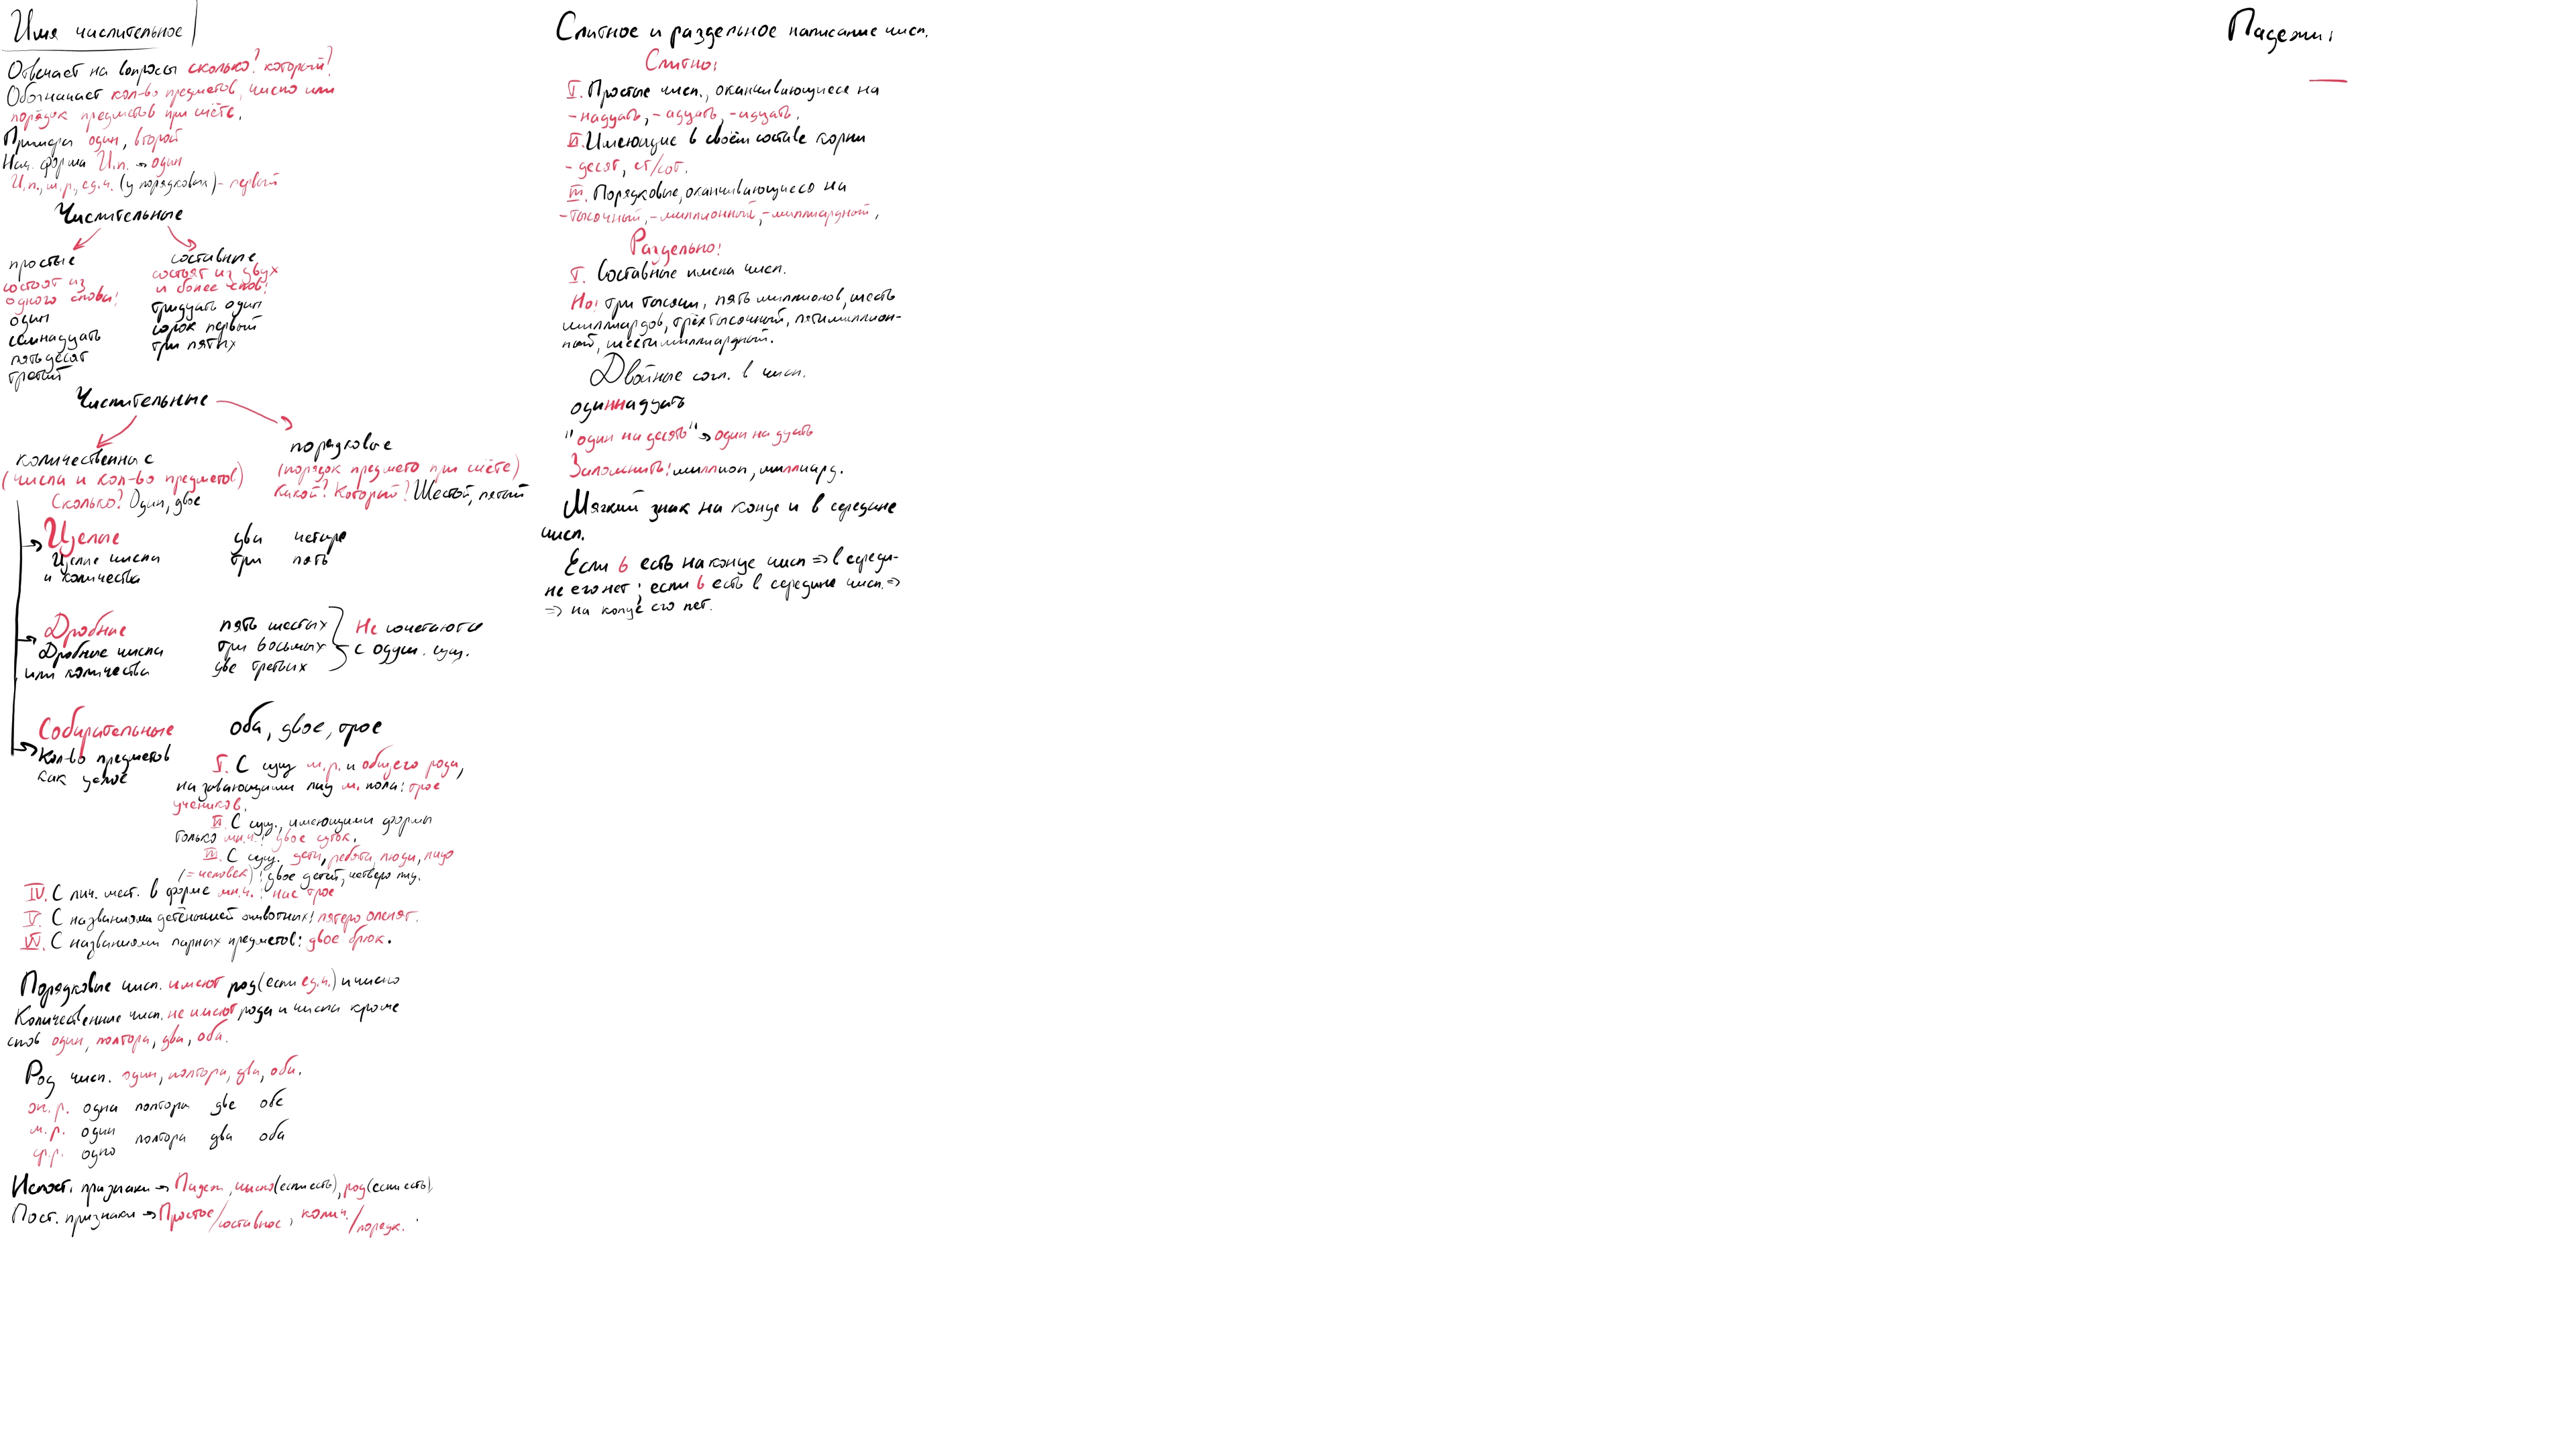 Имя числительное
Отвечает на вопросы сколько? который?
Обозначает кол-во предметов, число или
порядок предметов при счёте.
Примеры один, второй
Нач. форма И.п. → один
И.п., м.р., ед.ч. (у порядковых) - первый
Числительные
простые
состоят из
одного слова!
один
семнадцать
пятьдесят
третий
составные
состоят из двух
и более слов!
тридцать один
сорок первый
три пятых
Числительные
количественные
(числа и кол-во предметов)
Сколько? Один, двое
порядковые
(порядок предмето при счёте)
Какой? Который? Шестой, пятый
Целые
Целые числа
и количества
два четыре
три пять
Дробные
Дробные числа
или количества
пять шестых
три восьмых
две третьих
Не сочетаются
с одуш. сущ.
Собирательные
Кол-во предметов
как целое
оба, двое, трое
I. С сущ м.р. и общего рода,
называющими лиц м. пола: трое
учеников.
II. С сущ., имеющими формы
только мн.ч.: двое суток.
III. С сущ. дети, ребята, люди, лицо
(= человек): двое детей, четверо лиц.
IV. С лич. мест. в форме мн.ч.: нас трое
V. С названиями детёнышей животных: пятеро оленят.
VI. С названиями парных предметов: двое брюк.
Порядковые числ. имеют род (если ед.ч.) и число
Количественные числ. не имеют рода и числа кроме
слов один, полтора, два, оба.
Род числ. один, полтора, два, оба.
ж.р. одна полтора две обе
м.р. один полтора два оба
ср.р. одно
Непост. признаки → Падеж, число (если есть), род (если есть)
Пост. признаки → Простое/составное, колич./порядк.
Слитное и раздельное написание числ.
Слитно:
I. Простые числ., оканчивающиеся на
-надцать, -адцать, -идцать.
II. Имеющие в своём составе корни
- десят, ст/сот.
III. Порядковые, оканчивающиеся на
-тысячный, -миллионный, -миллиардный.
Раздельно:
I. Составные имена числ.
Но: три тысячи, пять миллионов, шесть
миллиардов, трёхтысячный, пятимиллион-
ный, шестимиллиардный.
Двойные согл. в числ.
одиннадцать
"один на десять" → один на дцать
Запомнить: миллион, миллиард.
Мягкий знак на конце и в середине
числ.
Если ь есть на конце числ ⇒ в середи-
не его нет; если ь есть в середине числ. ⇒
⇒ на конце его нет.
Падежи: